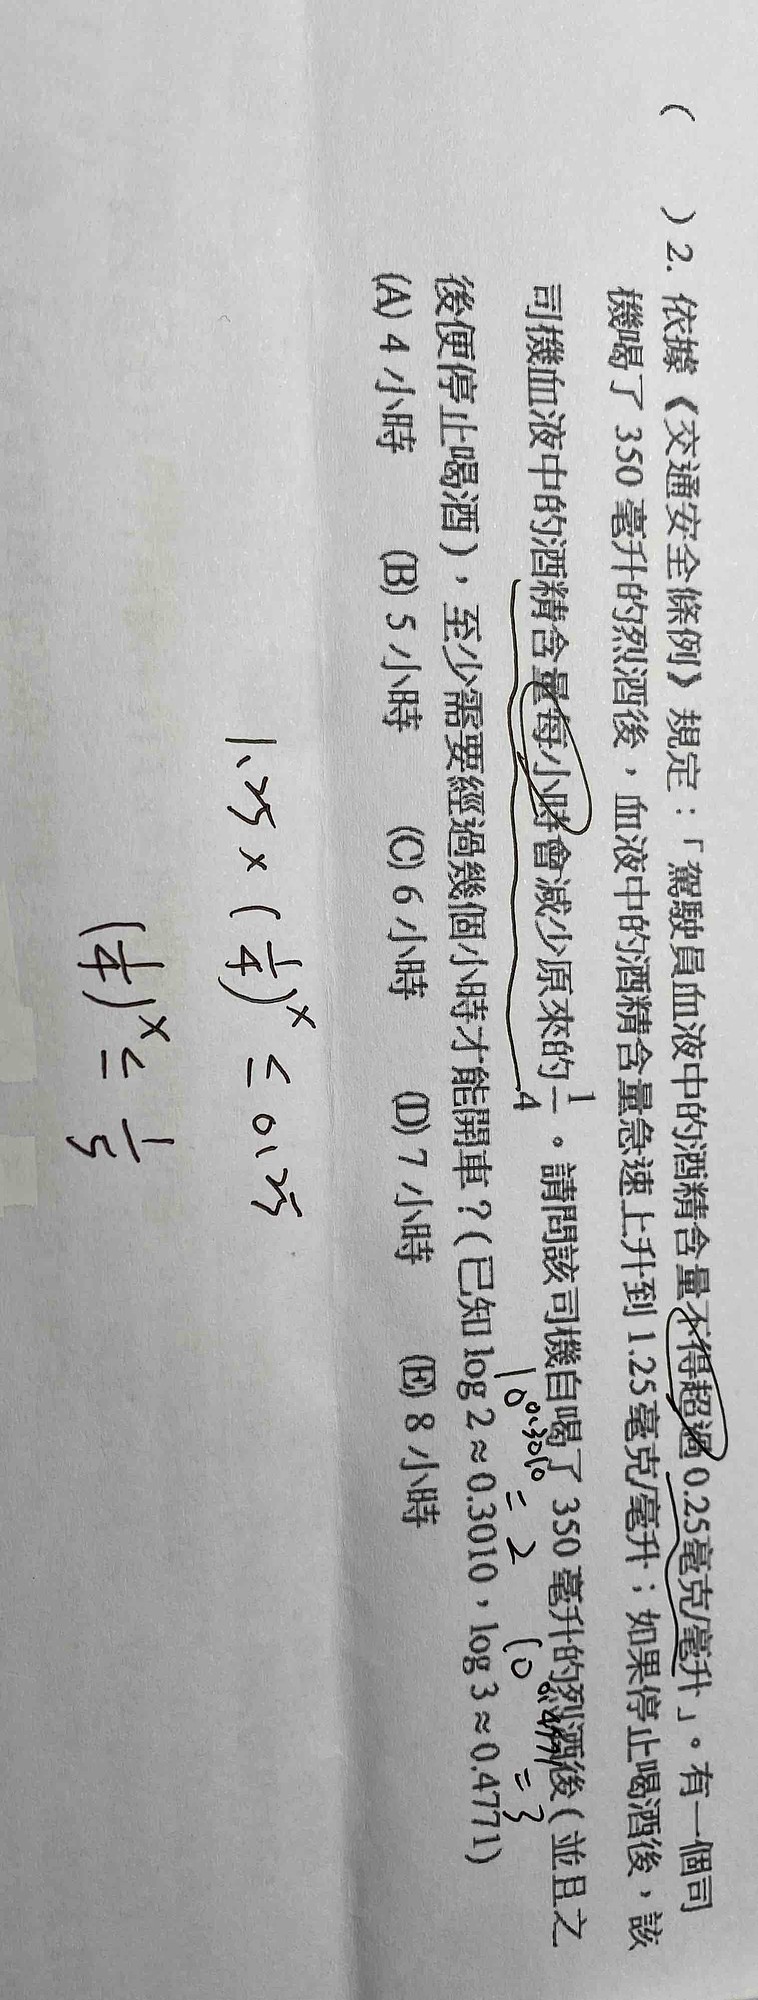 (　　) 2. 依據《交通安全條例》規定：「駕駛員血液中的酒精含量不得超過 0.25 毫克/毫升」。有一個司
機喝了 350 毫升的烈酒後，血液中的酒精含量急速上升到 1.25 毫克/毫升；如果停止喝酒後，該
司機血液中的酒精含量每小時會減少原來的 1/4。請問該司機自喝了 350 毫升的烈酒後（並且之
10^0.3010 = 2　10^0.4771 = 3
後便停止喝酒），至少需要經過幾個小時才能開車？(已知 log 2 ≈ 0.3010，log 3 ≈ 0.4771)
(A) 4 小時　(B) 5 小時　(C) 6 小時　(D) 7 小時　(E) 8 小時
1.25 × (1/4)^x ≤ 0.25
(1/4)^x ≤ 1/5